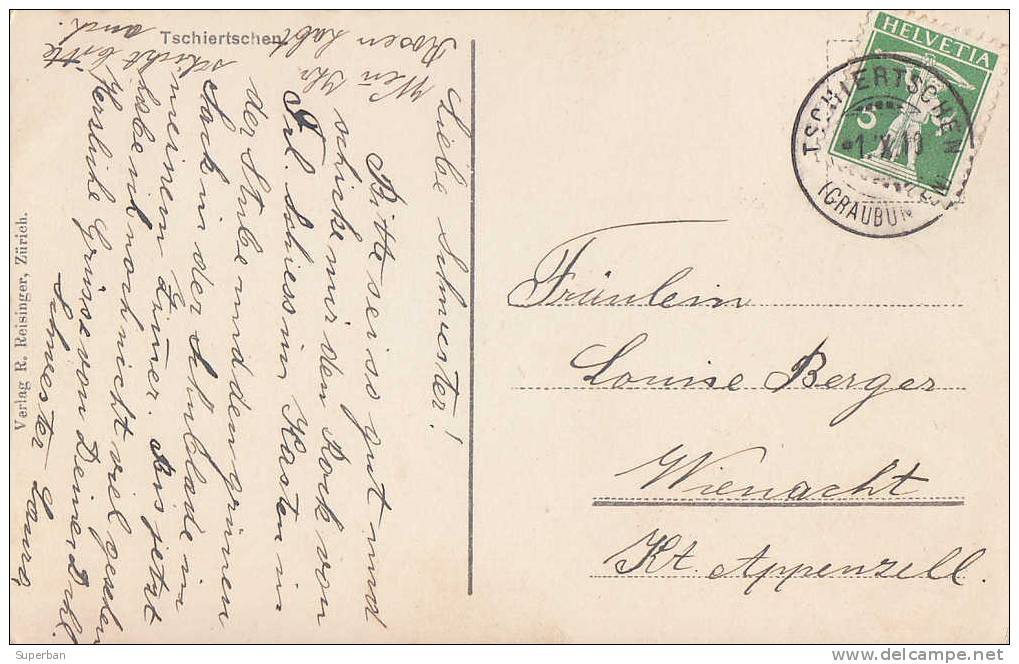 Tschiertschen
Liebe Schwester!
Bitte sei so gut und
schicke mir den Rock von
Frl. Schiess im Kasten in
der Stube und den grünen
Sack in der Schublade in
meinem Zimer. Bis jetzt
habe ich noch nicht viel gesehen
Herzliche Grüsse von Deiner Dchl.
Schwester Laura
Wen Ihr
Rosen habt
schickt bitte
auch.
Verlag R. Reisinger, Zürich.
HELVETIA
5
TSCHIERTSCHEN
-1.X.10
(GRAUBÜNDEN)
Fräulein
Louise Berger
Wienacht
Kt. Appenzell.
© Superban
delcampe.net